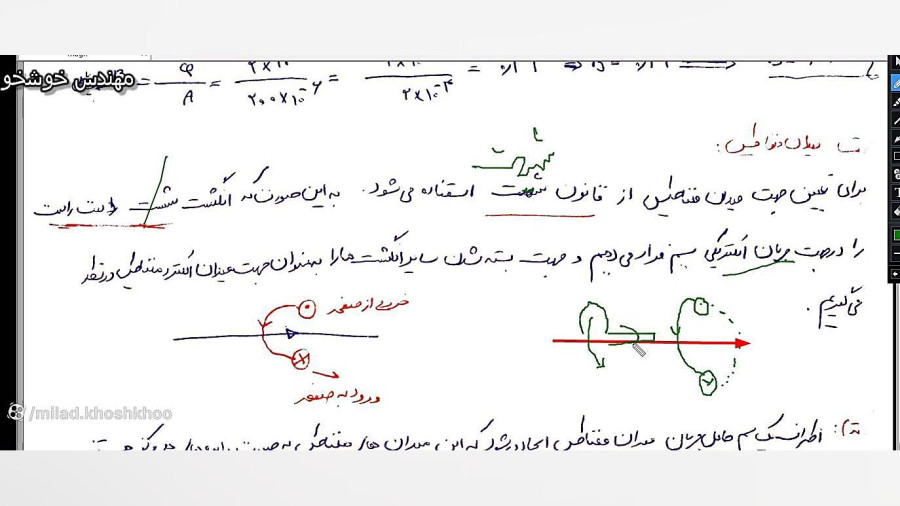 مهندس خوشخو
= φ / A = ۲×۱۰ / ۲۰۰×۱۰⁻۶ = / ۲×۱۰⁻۴ =
میدان مغناطیسی:
برای تعیین جهت میدان مغناطیسی از قانون شست استفاده می‌شود. به این صورت که انگشت شست دست راست
را در جهت جریان الکتریکی سیم قرار می‌دهیم و جهت بسته شدن سایر انگشت ها را به عنوان جهت میدان مغناطیسی در نظر
می گیریم.
خروج از صفحه
ورود به صفحه
/milad.khoshkhoo
اطراف یک سیم حامل جریان میدان مغناطیسی ایجاد می شود که این میدان های مغناطیسی به صورت